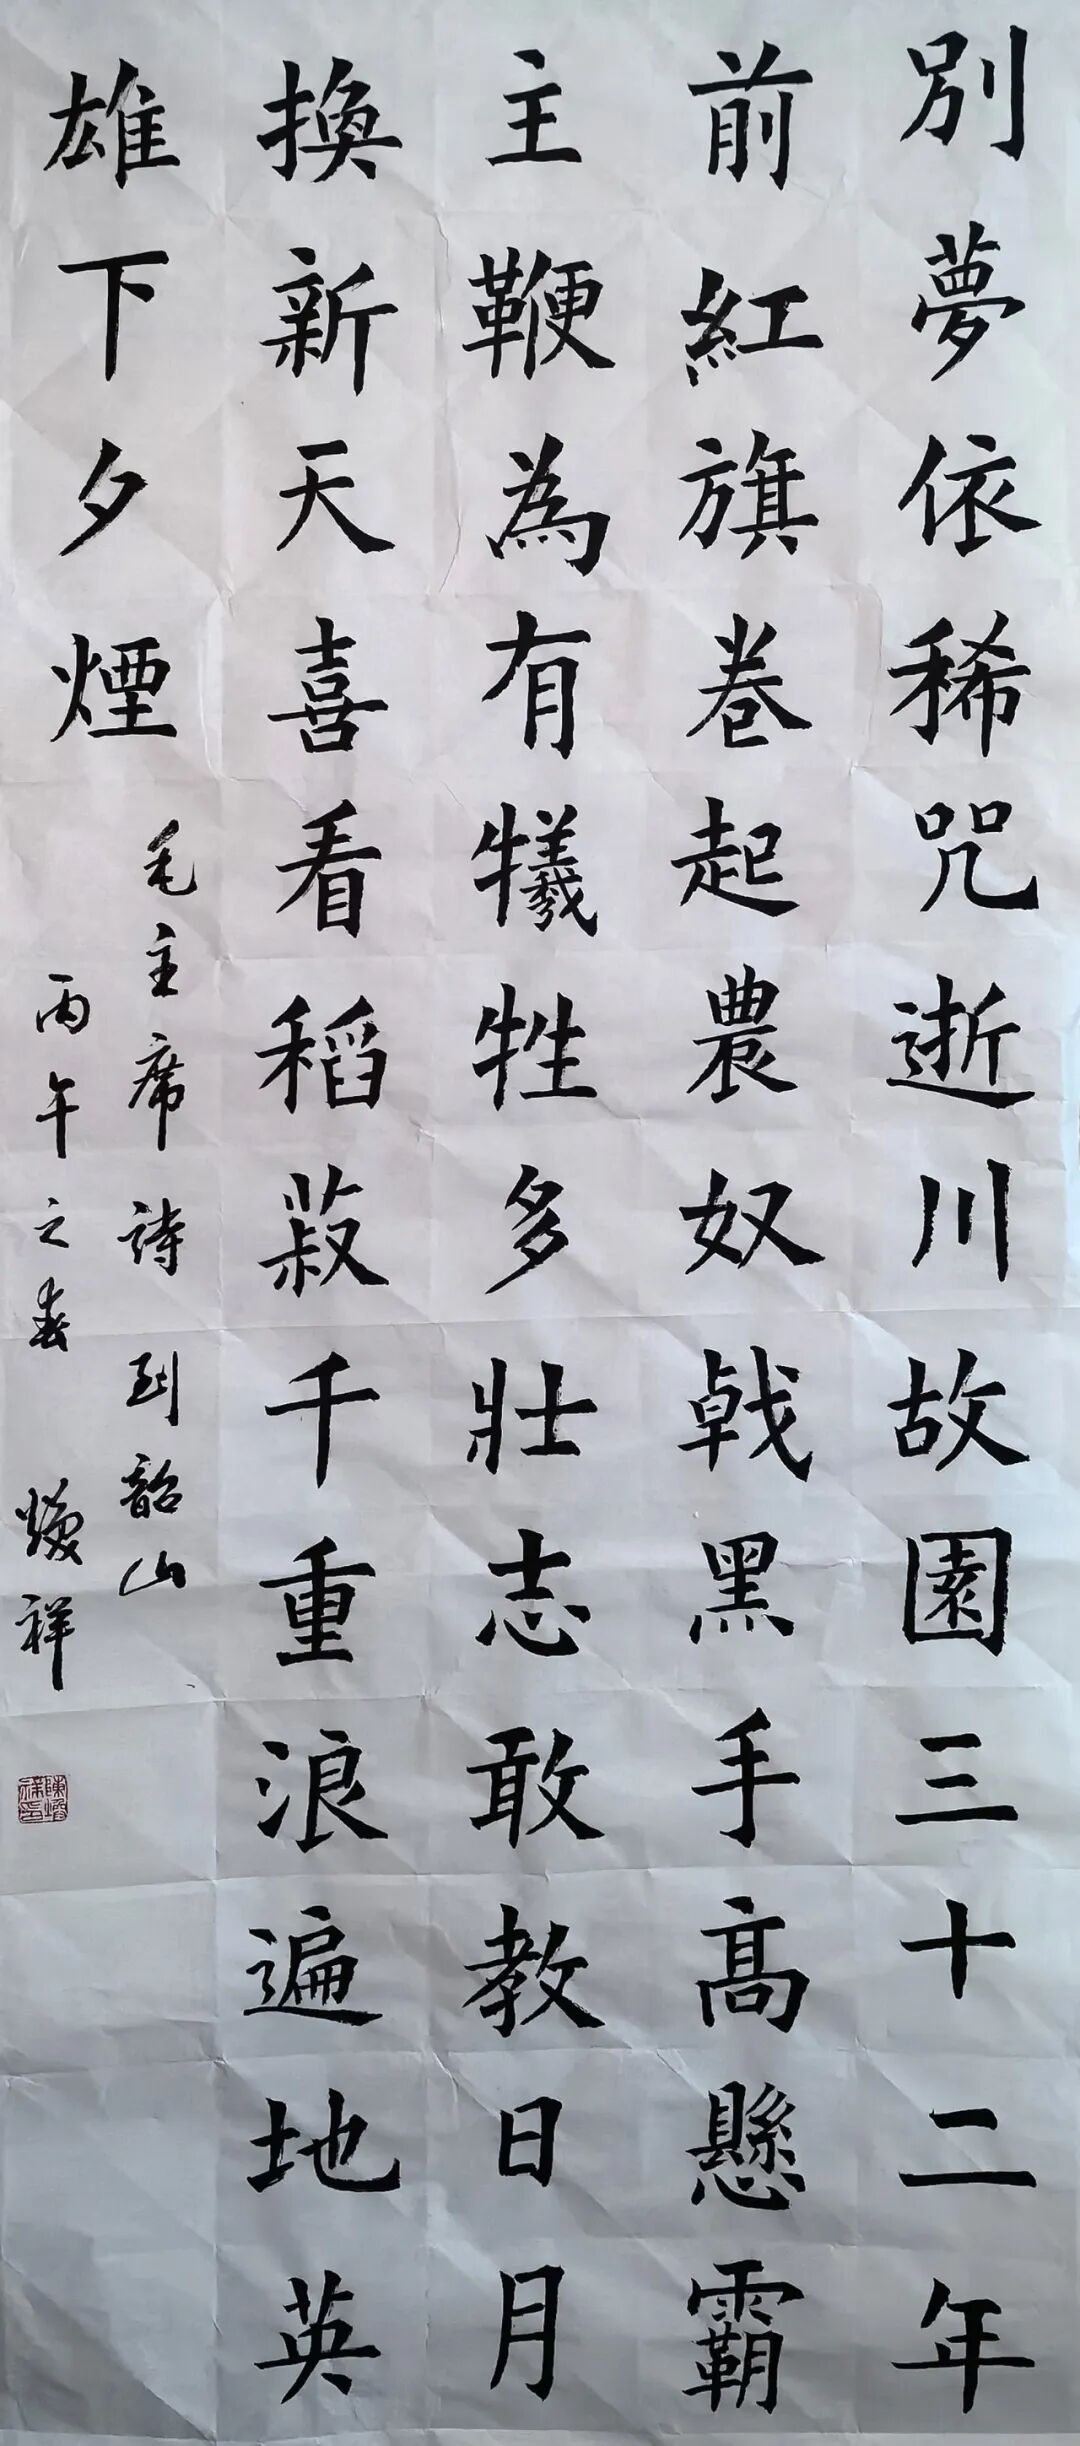 別夢依稀咒逝川故園三十二年
前紅旗卷起農奴戟黑手高懸霸
主鞭為有犧牲多壯志敢教日月
換新天喜看稻菽千重浪遍地英
雄下夕煙
毛主席詩到韶山
丙午之春 煥祥